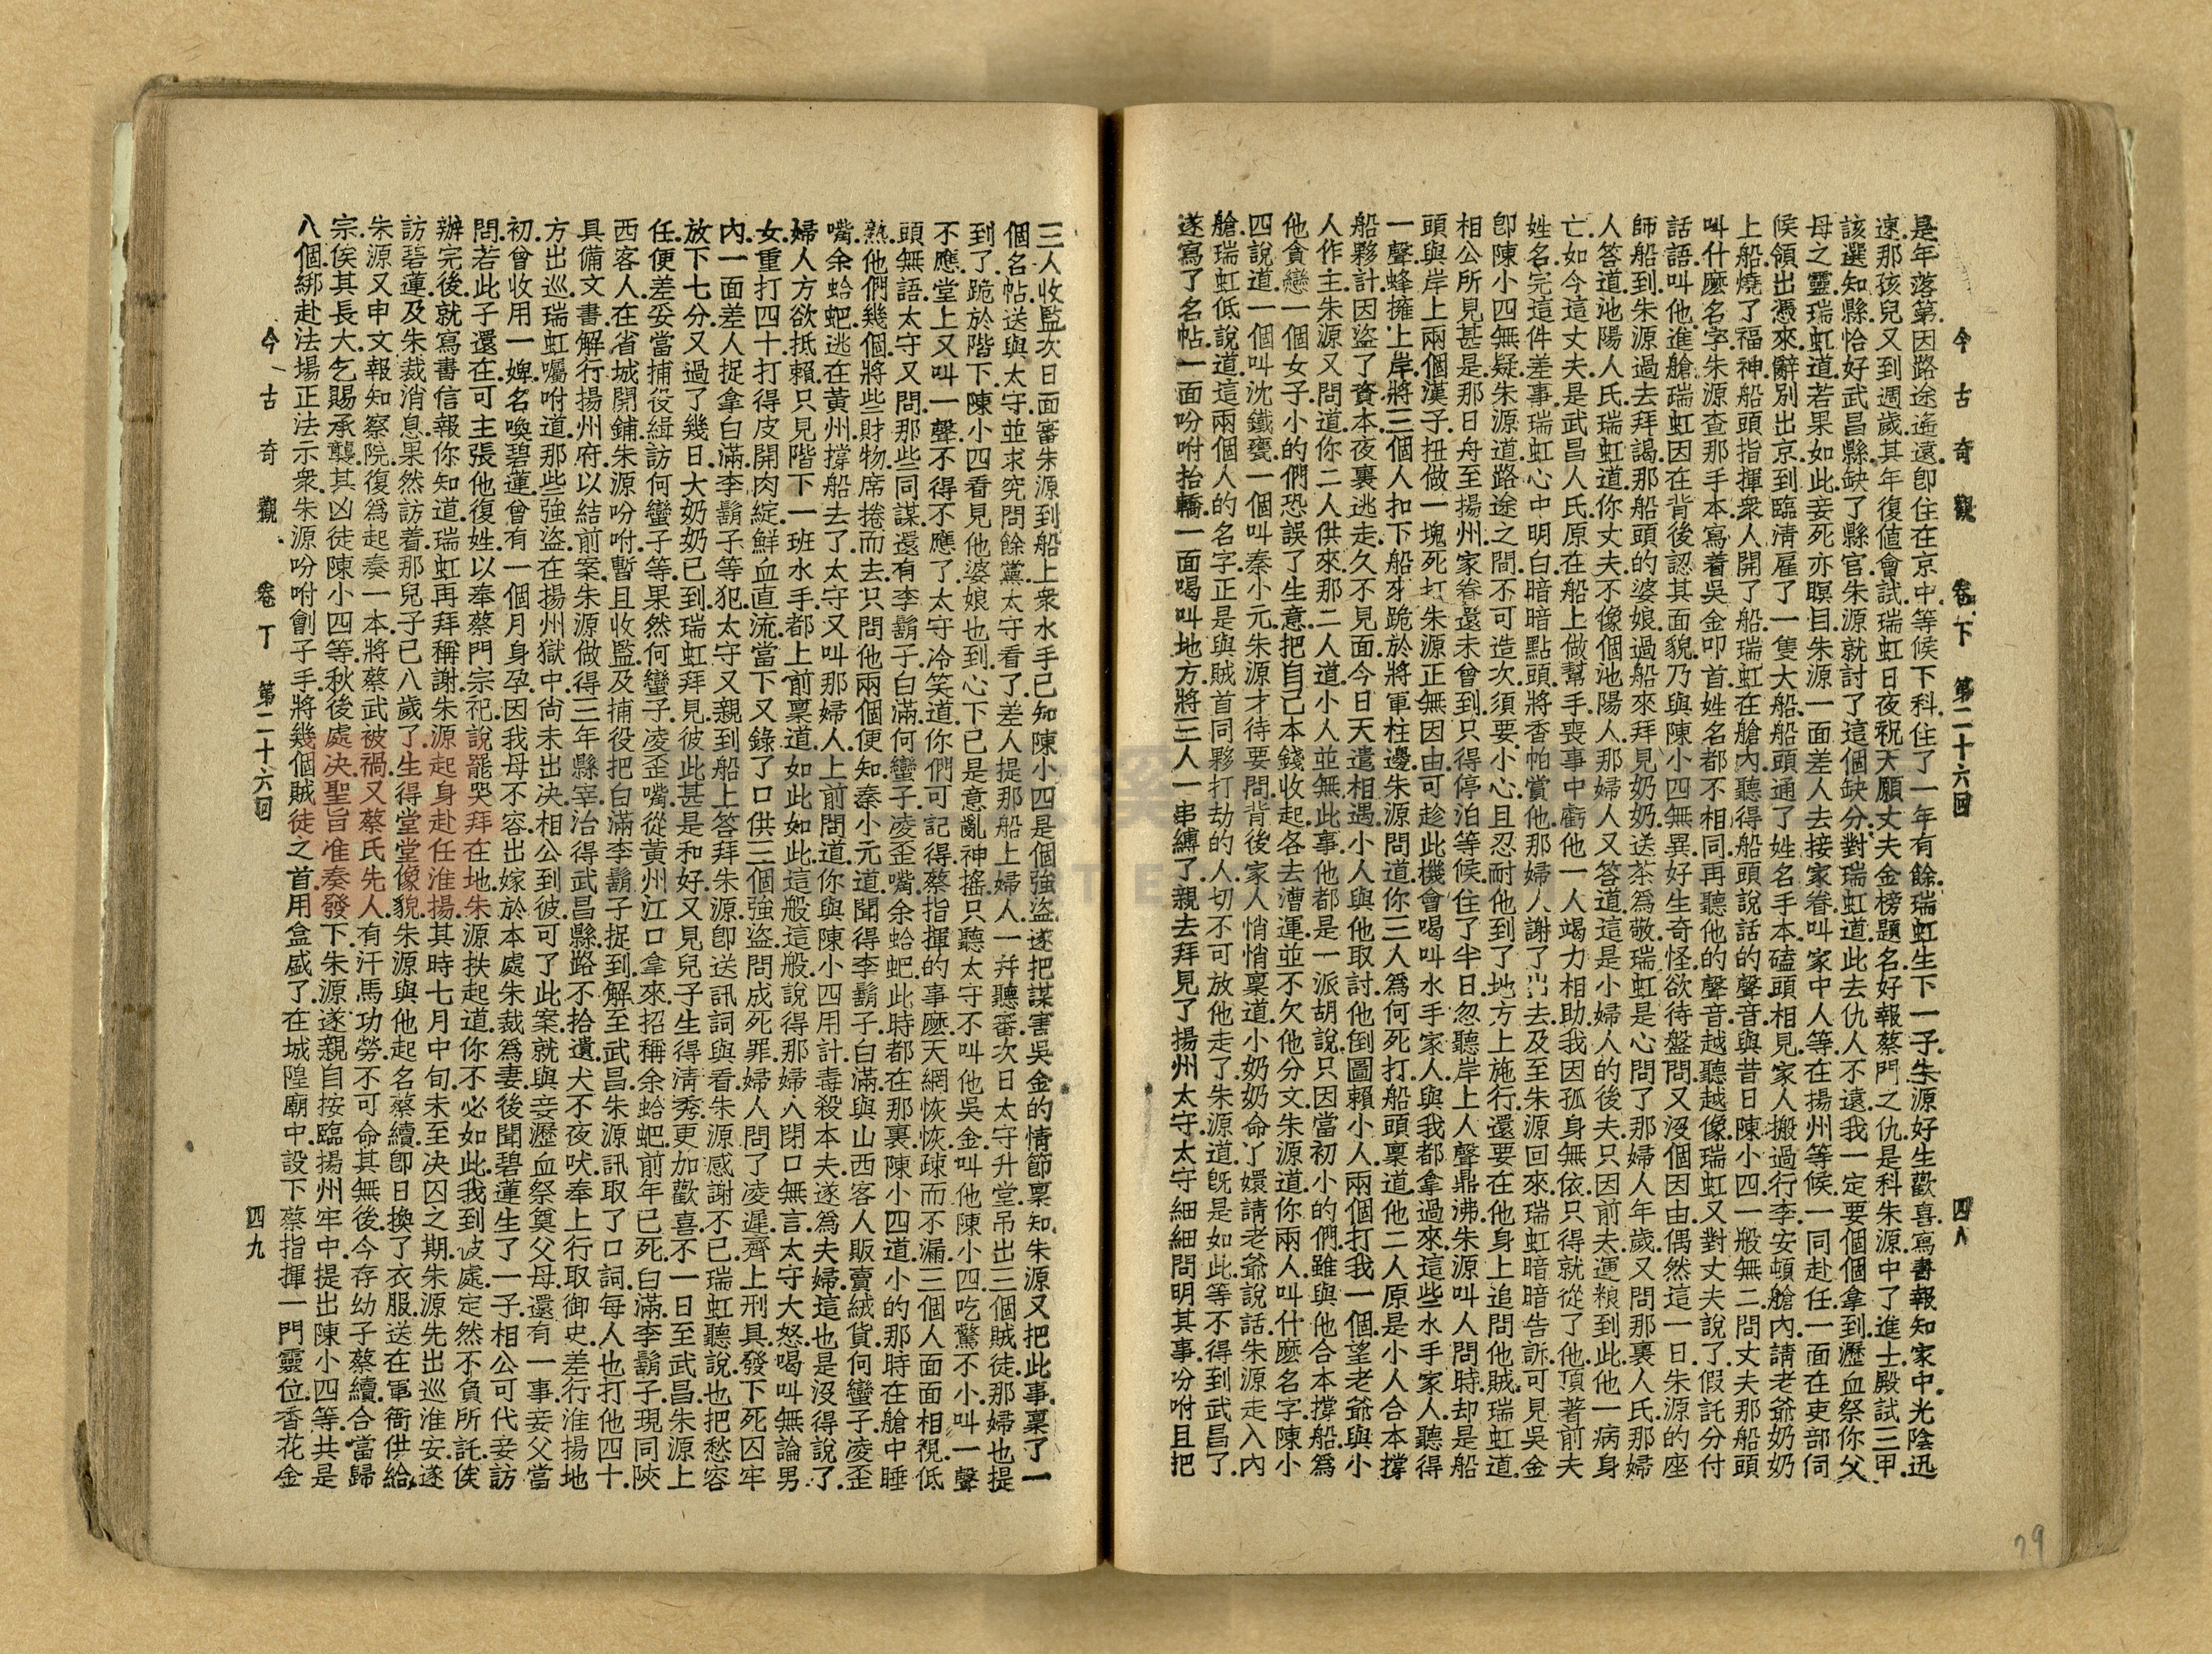 今古奇觀 卷下 第二十六回 四八
是年落第.因路途遙遠.卽住在京中.等候下科.住了一年有餘.瑞虹生下一子.朱源好生歡喜.寫書報知家中.光陰迅
速.那孩兒又到週歲.其年復值會試.瑞虹日夜祝天.願丈夫金榜題名.好報蔡門之仇.是科朱源中了進士.殿試三甲.
該選知縣.恰好武昌縣缺了縣官.朱源就討了這個缺分.對瑞虹道.此去仇人不遠.我一定要個個拿到.瀝血祭你父
母之靈.瑞虹道.若果如此.妾死亦瞑目.朱源一面差人去接家眷.叫家中人等.在揚州等候.一同赴任.一面在吏部伺
候領出憑來.辭別出京.到臨清雇了一隻大船.船頭通了姓名手本.磕頭相見.家人搬過行李.安頓艙內.請老爺奶奶
上船.燒了福神.船頭指揮衆人開了船.瑞虹在艙內聽得船頭說話的聲音.與昔日陳小四一般無二.問丈夫那船頭
叫什麼名字.朱源查那手本寫着吳金叩首.姓名都不相同.再聽他的聲音.越聽越像.瑞虹又對丈夫說了.假託分付
話語.叫他進艙.瑞虹因在背後認其面貌.乃與陳小四無異.好生奇怪.欲待盤問.又沒個因由.偶然這一日.朱源的座
師船到.朱源過去拜謁.那船頭的婆娘過船來拜見奶奶.送茶爲敬.瑞虹是心問了那婦人年歲.又問那裏人氏.那婦
人答道.池陽人氏.瑞虹道.你丈夫不像個池陽人.那婦人又答道.這是小婦人的後夫.只因前夫運粮到此.他一病身
亡.如今這丈夫.是武昌人氏.原在船上做幫手.喪事中虧他一人竭力相助.我因孤身無依.只得就從了他.頂著前夫
姓名.完這件差事.瑞虹心中明白.暗暗點頭.將香帕賞他.那婦人謝了出去.及至朱源回來.瑞虹暗暗告訴.可見吳金
卽陳小四無疑.朱源道.路途之間.不可造次.須要小心.且忍耐他到了地方上施行.還要在他身上追問他賊.瑞虹道.
相公所見甚是.那日舟至揚州.家眷還未曾到.只得停泊等候.住了半日.忽聽岸上人聲鼎沸.朱源叫人問時.却是船
頭與岸上兩個漢子扭做一塊死打.朱源正無因由.可趁此機會.喝叫水手家人.與我都拿過來.這些水手家人.聽得
一聲.蜂擁上岸.將三個人扣下船牙.跪於將軍柱邊.朱源問道.你三人爲何死打.船頭稟道.他二人原是小人合本撐
船夥計.因盜了資本.夜裏逃走.久不見面.今日天遣相遇.小人與他取討.他倒圖賴小人.兩個打我一個.望老爺與小
人作主.朱源又問道.你二人供來.那二人道.小人並無此事.他都是一派胡說.只因當初小的們.雖與他合本撐船.爲
他貪戀一個女子.小的們恐誤了生意.把自己本錢收起.各去漕運.並不欠他分文.朱源道.你兩人叫什麼名字.陳小
四說道.一個叫沈鐵甕.一個叫秦小元.朱源才待要問.背後家人悄悄稟道.小奶奶命丫嬛請老爺說話.朱源走入內
艙.瑞虹低說道.這兩個人的名字.正是與賊首同夥打劫的人.切不可放他走了.朱源道.旣是如此.等不得到武昌了.
遂寫了名帖.一面吩咐抬轎.一面喝叫地方將三人一串縛了.親去拜見了揚州太守.太守細細問明其事.吩咐且把
三人收監.次日面審.朱源到船上.衆水手已知陳小四是個強盜.遂把謀害吳金的情節稟知.朱源又把此事.稟了一
個名帖.送與太守.並求究問餘黨.太守看了.差人提那船上婦人.一幷聽審.次日太守升堂.吊出三個賊徒.那婦也提
到了.跪於階下.陳小四看見他婆娘也到.心下已是意亂神搖.只聽太守不叫他吳金.叫他陳小四.吃驚不小.叫一聲
不應.堂上又叫一聲.不得不應了.太守冷笑道.你們可記得蔡指揮的事麽.天網恢恢.疎而不漏.三個人面面相視.低
頭無語.太守又問.那些同謀.還有李鬍子白滿何蠻子凌歪嘴余蛤蚆.此時都在那裏.陳小四道.小的那時在艙中睡
熟.他們幾個.將些財物席捲而去.只問他兩個便知.秦小元道.聞得李鬍子白滿與山西客人販賣絨貨.何蠻子凌歪
嘴余蛤蚆.逃在黃州.撐船去了.太守又叫那婦人上前問道.你與陳小四用計毒殺本夫.遂爲夫婦.這也是沒得說了.
婦人方欲抵賴.只見階下一班水手.都上前稟道.如此如此.這般這般.說得那婦人閉口無言.太守大怒.喝叫無論男
女.重打四十.打得皮開肉綻.鮮血直流.當下又錄了口供.三個強盜.問成死罪.婦人問了凌遲.齊上刑具.發下死囚牢
內.一面差人捉拿白滿李鬍子等犯.太守又親到船上答拜朱源.卽送訊詞與看.朱源感謝不已.瑞虹聽說.也把愁容
放下七分.又過了幾日.大奶奶已到.瑞虹拜見.彼此甚是和好.又見兒子生得淸秀.更加歡喜.不一日至武昌.朱源上
任.便差妥當捕役.緝訪何蠻子等.果然何蠻子凌歪嘴.從黃州江口拿來.招稱余蛤蚆前年已死.白滿李鬍子.現同陝
西客人.在省城開鋪.朱源吩咐暫且收監.及捕役把白滿李鬍子捉到.解至武昌.朱源訊取了口詞.每人也打他四十.
具備文書.解行揚州府.以結前案.朱源做得三年縣宰.治得武昌縣路不拾遺.犬不夜吠.奉上行取御史.差行淮揚地
方出巡.瑞虹囑咐道.那些強盜.在揚州獄中.尙未出決.相公到彼.可了此案.就與妾瀝血祭奠父母.還有一事.妾父當
初曾收用一婢.名喚碧蓮.曾有一個月身孕.因我母不容.出嫁於本處朱裁爲妻.後聞碧蓮生了一子.相公可代妾訪
問.若此子還在.可主張他復姓.以奉蔡門宗祀.說罷哭拜在地.朱源扶起道.你不必如此.我到彼處.定然不負所託.俟
辦完後.就寫書信報你知道.瑞虹再拜稱謝.朱源起身赴任淮揚.其時七月中旬.未至决囚之期.朱源先出巡淮安.遂
訪碧蓮及朱裁消息.果然訪着.那兒子已八歲了.生得堂堂像貌.朱源與他起名蔡續.卽日換了衣服.送在軍衙供給.
朱源又申文報知察院.復爲起奏一本.將蔡武被禍.又蔡氏先人.有汗馬功勞.不可命其無後.今存幼子蔡續.合當歸
宗.俟其長大.乞賜承襲.其凶徒陳小四等.秋後處决.聖旨准奏.發下.朱源遂親自按臨揚州牢中.提出陳小四等.共是
八個.綁赴法場正法示衆.朱源吩咐劊子手.將幾個賊徒之首.用盒盛了.在城隍廟中.設下蔡指揮一門靈位.香花金
今古奇觀 卷丁 第二十六回 四九
79